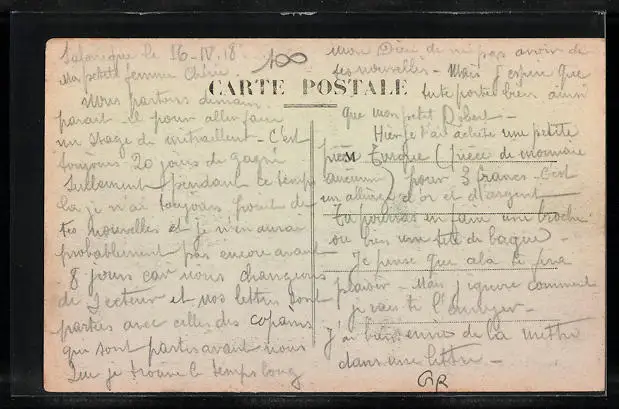 Salonique le 16-IV-18
100
Ma petite femme Chérie
CARTE POSTALE
Nous partons demain
parait-il pour aller faire
un stage de mitrailleur - C'est
toujours 20 jours de gagné
Seulement pendant ce temps
là je n'ai toujours point de
tes nouvelles et je n'en aurai
probablement pas encore avant
8 jours car nous changeons
de secteur et nos lettres sont
parties avec celles des copains
qui sont partis avant nous
Que je trouve le temps long
mon Dieu de ne pas avoir de
tes nouvelles - Mais j'espère que
tu te portes bien ainsi
que mon petit Robert -
Hier je t'ai acheté une petite
pièce Turque (pièce de monnaie
ancienne) pour 3 francs - C'est
un alliage d'or et d'argent
Tu pourras en faire une broche
ou bien une tête de bague -
Je pense que cela te fera
plaisir - Mais j'ignore comment
je vais te l'envoyer -
J'ai bien envie de la mettre
dans une lettre -
GR